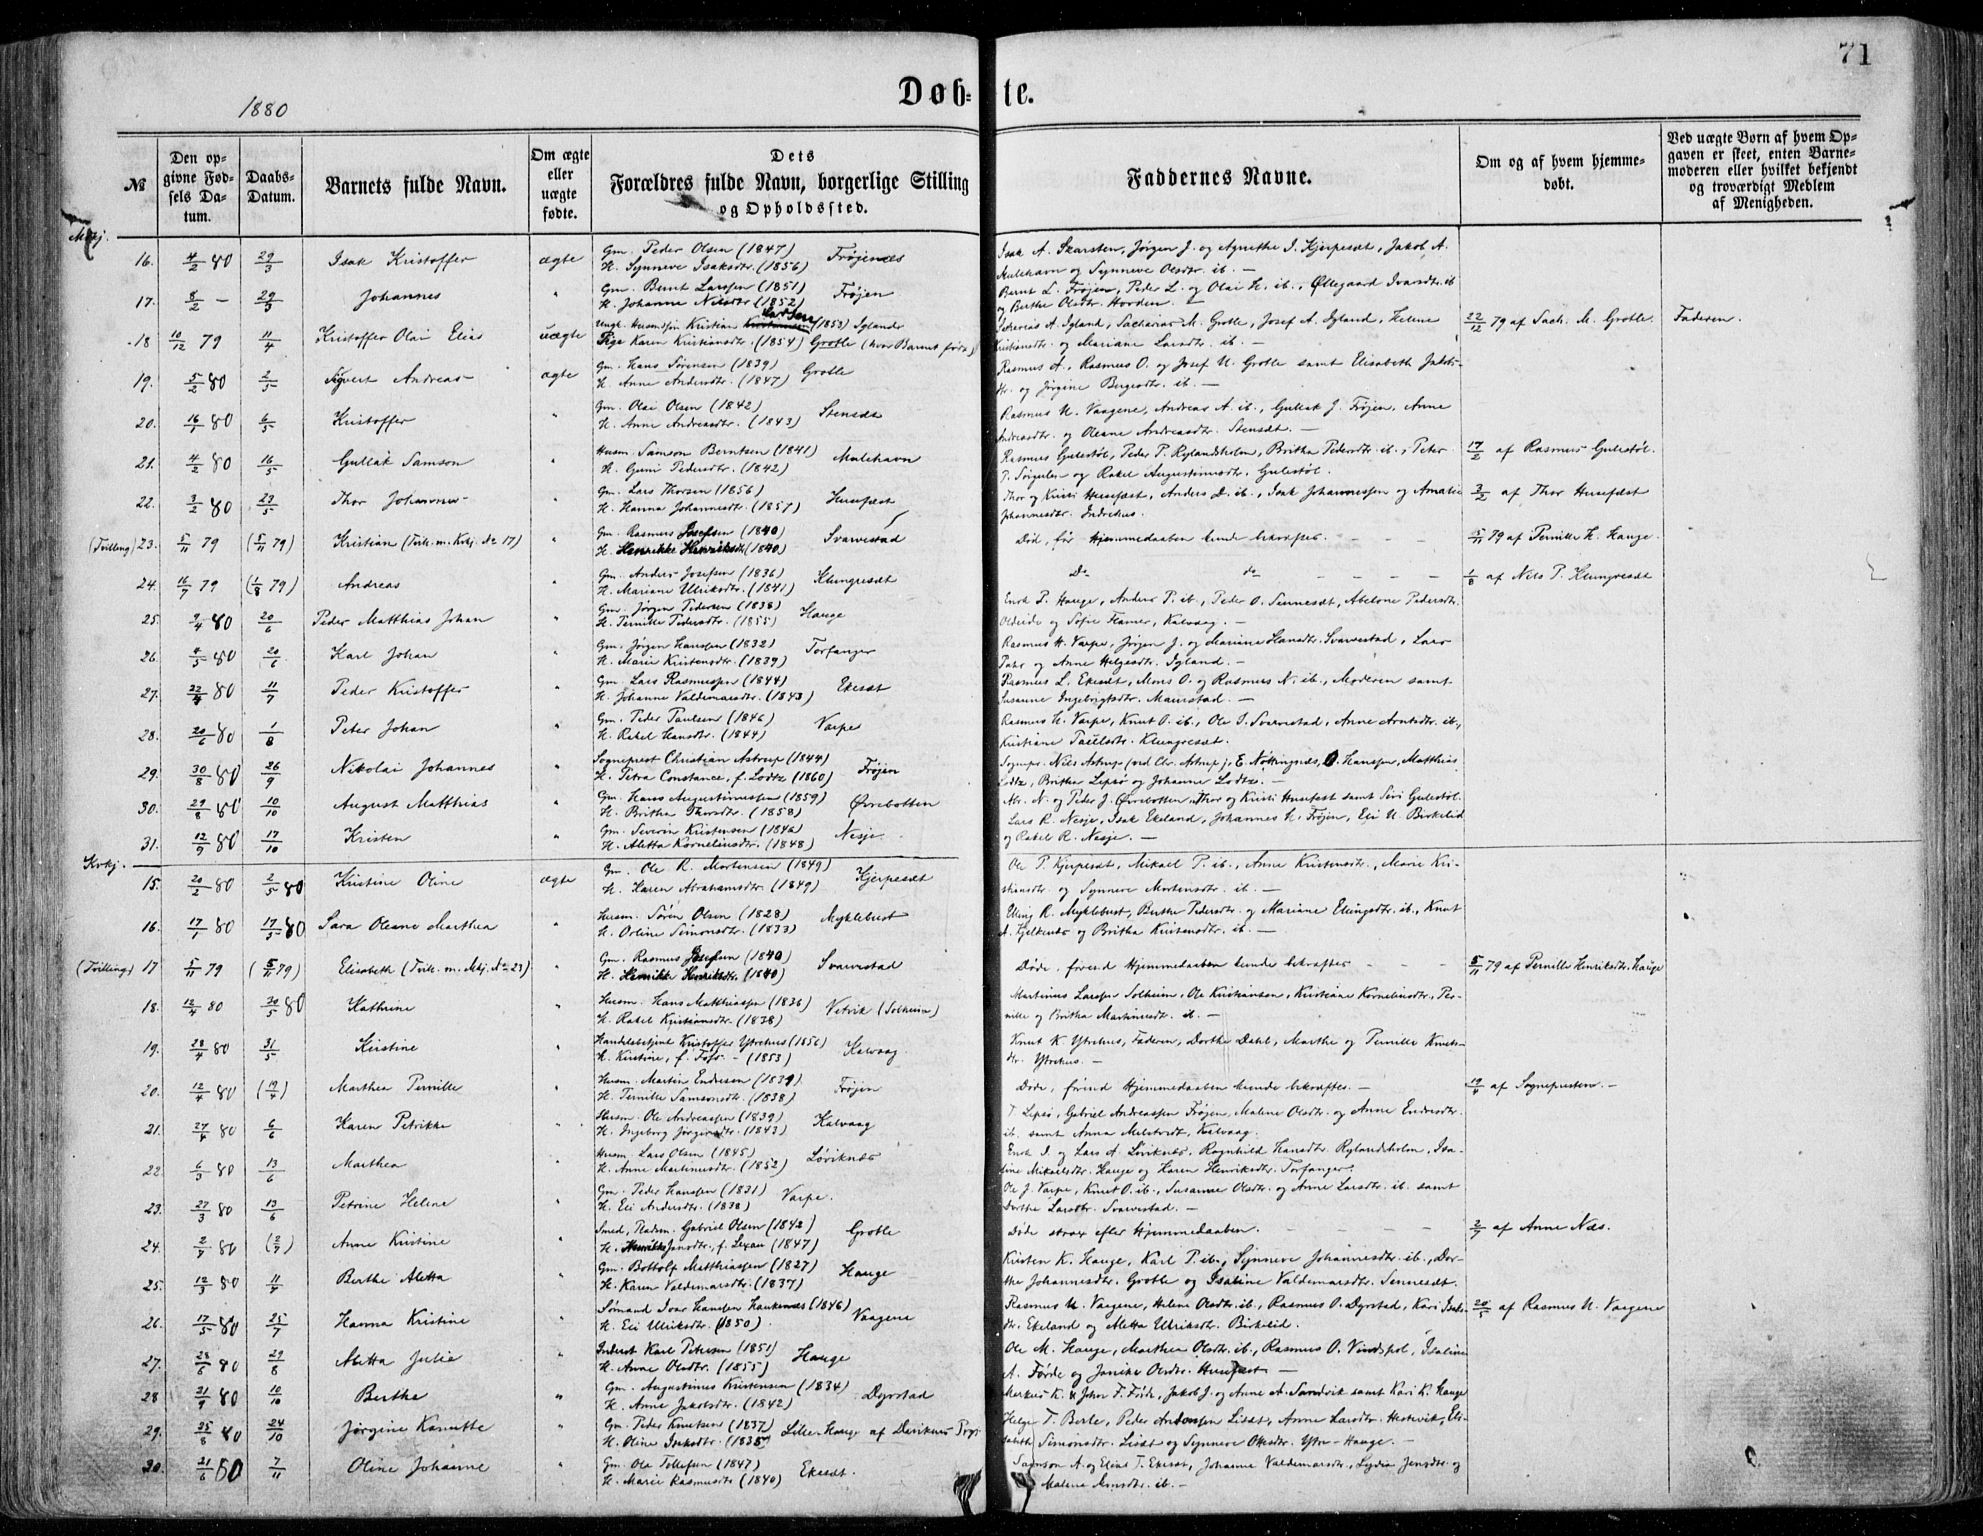 71
1880
Døb-te.
№
Den opgivne Fødsels Datum.
Daabs-Datum.
Barnets fulde Navn.
Om ægte eller uægte fødte.
Dets Forældres fulde Navn, borgerlige Stilling og Opholdssted.
Faddernes Navne.
Om og af hvem hjemmedøbt.
Ved uægte Børn af hvem Opgaven er skeet, enten Barnemoderen eller hvilket bekjendt og troværdigt Medlem af Menigheden.
Mkj.
16. 4/2 80 29/3 Isak Kristoffer ægte Gm. Peder Olsen (1847) Frøjenæs
H. Synneve Isaksdtr. (1856)
Isak A. Skarsten, Jørgen J. og Agnethe I. Kjerpesæt, Jakob A.
Mulehavn og Synneve Olsdtr. ib. —
17. 8/2 — 29/3 Johannes " Gm. Bernt Larssen (1851) Frøjen
H. Johanne Nilsdtr. (1852)
Bernt L. Frøjen, Peder L. og Olai H. ib., Øllegaard Ivarsdtr. ib
og Berthe Olsdtr. Hovden. —
18 10/12 79 11/4 Kristoffer Olai Elias uægte Ungk. Husmdsøn Kristian Larsen (1853) Igland
Pige Karen Kristiansdtr. (1854) Grotle (hvor Barnet født)
Zakarias A. Igland, Sacharias M. Grotle, Josef A. Igland, Helene
Kristiansdtr. og Mariane Larsdtr. ib. —
22/12 79 af Sach. M. Grotle. Faderen.
19. 5/2 80 2/5 Sivert Andreas ægte Gm. Hans Sørensen (1839) Grotle
H. Anne Andersdtr. (1847)
Rasmus A., Rasmus O. og Josef U. Grotle samt Elisabeth Jakobs-
dtr. og Jørgine Børgesdtr. ib. —
20. 16/1 80 6/5 Kristoffer " Gm. Olai Olsen (1842) Stensæt
H. Anne Andreasdtr. (1843)
Rasmus U. Vaagene, Andreas A. ib., Gullak J. Frøjen, Anne
Andreasdtr. og Oleane Andreasdtr. Stensæt. —
21. 4/2 80 16/5 Gullak Samson " Husm. Samson Berntsen (1841) Mulehavn
H. Guni Pedersdtr. (1842)
Rasmus Gulestøl, Peder P. Rylandsholm, Britha Pedersdtr. ib., Peter
T. Sørgulen og Rakel Augustinusdtr. Gulestøl.
17/2 af Rasmus Gulestøl.
22. 3/2 80 23/5 Thor Johannes " Gm. Lars Thorsen (1856) Husefæst
H. Hanna Johannesdtr. (1857)
Thor og Kristi Husefæst, Anders D. ib., Isak Johannessen og Amalie
Johannesdtr. Indrehus.
3/2 af Thor Husefæst
(Tvilling) 23. 5/11 79 (5/11 79) Kristian (Tvill. m. Kvkj. № 17) " Gm. Rasmus Josefsen (1840) Svarvestad
H. Henrikke Henriksdtr. (1840)
Død, før Hjemmedaaben kunde bekræftes. — — —
5/11 79 af Pernille H. Hauge.
24. 16/7 79 (1/8 79) Andreas " Gm. Anders Josefsen (1836) Klungresæt
H. Mariane Ulriksdtr. (1841)
Do do — — — —
1/8 af Nils P. Klungresæt
25. 9/4 80 20/6 Peder Matthias Johan " Gm. Jørgen Pedersen (1838) Hauge
H. Pernille Pedersdtr. (1855)
Enok P. Hauge, Anders P. ib., Peder O. Sennesæt, Abelone Pedersdtr.
Oldeide og Sofie Flamer, Kalvaag. —
26. 4/5 80 20/6 Karl Johan " Gm. Jørgen Hanssen (1832) Torfanger
H. Marie Kristensdtr. (1839)
Rasmus H. Varpe, Jørgen J. og Marianne Hansdtr. Svarvestad, Lars
Pahr og Anne Helgesdtr. Igland. —
27. 22/4 80 11/7 Peder Kristoffer " Gm. Lars Rasmussen (1844) Ekesæt
H. Johanne Valdemarsdtr. (1843)
Rasmus L. Ekesæt, Mons O. og Rasmus N. ib., Moderen samt
Susanne Ingebrigtsdtr. Maurstad. —
28. 20/6 80 1/8 Peter Johan " Gm. Peder Paulsen (1846) Varpe
H. Rakel Hansdtr. (1844)
Rasmus H. Varpe, Knut O. ib., Ole I. Svarvestad, Anne Arntsdtr. ib,
Kristiane Paulsdtr. Klungresæt.
29. 30/8 80 26/9 Nikolai Johannes " Sogneprest Christian Astrup (1844) Frøjen
H. Petra Constance, f. Lodtz (1860)
Sognepr. Nils Astrup (ved Chr. Astrup), E. Nøttingnæs, O. Hanssen, Matthias
Lodtz, Britha Lepsø og Johanne Lodtz. —
30. 29/8 80 10/10 August Matthias " Gm. Hans Augustinussen (1859) Øvrebotten
H. Britha Thorsdtr. (1858)
Abr. N. og Peder J. Øvrebotten, Thor og Kristi Husefæst samt Siri Gulestøl.
31. 12/9 80 17/10 Kristen " Gm. Severin Kristensen (1842) Nesje
H. Aletta Kornelinsdtr. (1848)
Lars R. Nesje, Isak Ekeland, Johannes H. Frøjen, Eli U. Birkelid
og Rakel R. Nesje. —
Kvkj.
15. 20/2 80 2/5 80 Kristine Oline ægte Gm. Ole R. Mortensen (1849) Kjerpesæt
H. Karen Abrahamsdtr. (1849)
Ole P. Kjerpesæt, Mikael P. ib., Anne Kristensdtr., Marie Kri-
stiansdtr. og Synneve Mortensdtr. ib. —
16. 17/1 80 17/5 80 Sara Oleane Marthea " Husm. Søren Olsen (1828) Myklebust
H. Orline Simonsdtr. (1833)
Elling R. Myklebust, Berthe Pedersdtr. og Mariane Ellingsdtr. ib., Knut
A. Gjelkenæs og Britha Kristensdtr. ib. —
(Tvilling) 17 5/11 79 (5/11 79) Elisabeth (Tvill. m. Mkj. № 23) " Gm. Rasmus Josefsen (1840) Svarvestad
H. Henrikke Henriksdtr. (1840)
Døde, førend Hjemmedaaben kunde bekræftes — — — —
5/11 79 af Pernille Henriksdtr. Hauge
18. 12/4 80 30/5 80 Kathrine " Husm. Hans Matthiassen (1836) Vetvik (Solheim)
H. Rakel Kristiansdtr. (1838)
Martinus Larssen Solheim, Ole Kristiansen, Kristiane Kornelinsdtr., Per-
nille og Britha Martinusdtr. ib —
19. 28/4 80 31/5 Kristine " Handelsbetjent Kristoffer Ytrehus (1856) Kalvaag
H. Kristine, f. Foss — (1853)
Knut K. Ytrehus, Faderen, Dorthe Dahl, Marthe og Pernille Knuts-
dtr. Ytrehus. —
20. 12/4 80 (19/4) Marthea Pernille " Husm. Martin Endresen (1839) Frøjen
H. Pernille Samsonsdtr. (1838)
Døde, førend Hjemmedaaben kunde bekræftes. — —
19/4 af Sognepresten. —
21. 27/4 80 6/6 Karen Petrikke " Husm. Ole Andreassen (1839) Kalvaag
H. Ingeborg Jørgensdtr. (1843)
T. Lepsø, Gabriel Andreassen Frøjen, Malene Olsdtr. og Anne Endresdtr.
ib. samt Anna Milstredt, Kalvaag.
22. 6/3 80 13/6 Marthea " Husm. Lars Olsen (1845) Løviknæs
H. Anne Martinusdtr. (1852)
Enok I. og Lars A. Løviknæs, Ragnhild Hansdtr. Rylandsholm, Isa-
line Mikaelsdtr. Hauge og Karen Henriksdtr. Torfanger.
23. 27/3 80 13/6 Petrine Helene " Gm. Peder Hanssen (1831) Varpe.
H. Eli Andersdtr. (1838)
Ole J. Varpe, Knut O. ib., Susanne Olsdtr. og Anne Larsdtr. ib. samt
Dorthe Larsdtr. Svarvestad. —
24. 2/7 80 (2/7) Anne Kristine " Smed, Pladsm. Gabriel Olsen (1842) Grotle
H. Henrikke Jansdtr., f. Lexau (1847)
Døde strax efter Hjemmedaaben. — — —
2/7 af Anne Næs.
25. 12/3 80 11/7 Berthe Aletta " Gm. Bottolf Matthiassen (1827) Hauge
H. Karen Valdemarsdtr. (1837)
Kristen K. Hauge, Karl P. ib., Synneve Johannesdtr. ib., Dor-
the Johannesdtr. Grotle og Isaline Valdemarsdtr. Sennesæt.
26. 17/5 80 25/7 Hanna Kristine " Sømand Ivar Hanssen Haukenæs (1846) Vaagene
H. Eli Ulriksdtr. (1850).
Rasmus U. Vaagene, Helene Olsdtr. ib., Rasmus O. Dyrstad, Kari Isaks-
dtr. Ekeland og Aletta Ulriksdtr. Birkelid.
20/5 af Rasmus U. Vaagene
27. 28/6 80 29/8 Aletta Julie " Inderst Karl Petersen (1851) Hauge
H. Anne Olsdtr. (1855)
Ole M. Hauge, Marthea Olsdtr. ib., Rasmus O. Vindspol, Isaline
A. Førde og Janike Olsdtr. Husefæst —
28 21/9 80 10/10 Berthe " Gm. Augustinus Kristensen (1834) Dyrstad
H. Anne Jakobsdtr. (1842)
Merkus K. & John F. Førde, Jakob J. og Anne A. Sandvik samt Kari K. Hauge
29. 25/8 80 24/10 Jørgine Kanutte " Gm. Peder Knutsen (1837) Lille-Hauge af Daviknes Prgj.
H. Oline Isaksdtr. (1835)
Helge T. Berle, Peder Andersen Lisæt, Anne Larsdtr. Hestevik, Eli-
sabeth Simonsdtr. Lisæt og Synneve Ottesdtr. Ytre-Hauge. —
30. 21/6 80 7/11 Oline Johanne " Gm. Ole Tollefsen (1847) Ekesæt.
H. Marie Rasmusdtr. (1840)
Samson A. og Elias T. Ekesæt, Johanne Valdemarsdtr., Lydia Jensdtr. og
Malene Monsdtr. ib. —